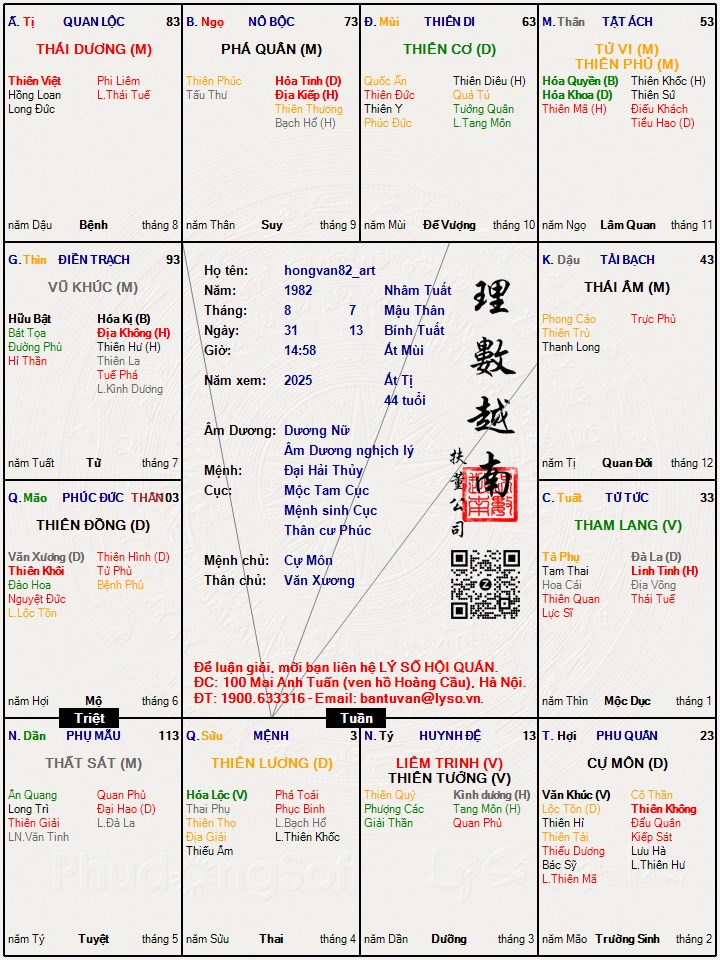 Ă. Tị QUAN LỘC 83
THÁI DƯƠNG (M)
Thiên Việt
Hồng Loan
Long Đức
Phi Liêm
L.Thái Tuế
năm Dậu Bệnh tháng 8
B. Ngọ NÔ BỘC 73
PHÁ QUÂN (M)
Thiên Phúc
Tấu Thư
Hỏa Tinh (D)
Địa Kiếp (H)
Thiên Thương
Bạch Hổ (H)
năm Thân Suy tháng 9
Đ. Mùi THIÊN DI 63
THIÊN CƠ (D)
Quốc Ấn
Thiên Đức
Thiên Y
Phúc Đức
Thiên Diêu (H)
Quả Tú
Tướng Quân
L.Tang Môn
năm Mùi Đế Vượng tháng 10
M. Thân TẬT ÁCH 53
TỬ VI (M)
THIÊN PHỦ (M)
Hóa Quyền (B)
Hóa Khoa (D)
Thiên Mã (H)
Thiên Khốc (H)
Thiên Sứ
Điếu Khách
Tiểu Hao (D)
năm Ngọ Lâm Quan tháng 11
G. Thìn ĐIỀN TRẠCH 93
VŨ KHÚC (M)
Hữu Bật
Bát Tọa
Đường Phù
Hỉ Thần
Hóa Kị (B)
Địa Không (H)
Thiên Hư (H)
Thiên La
Tuế Phá
L.Kình Dương
năm Tuất Tử tháng 7
Họ tên: hongvan82_art
Năm: 1982 Nhâm Tuất
Tháng: 8 7 Mậu Thân
Ngày: 31 13 Bính Tuất
Giờ: 14:58 Ất Mùi
Năm xem: 2025 Ất Tị
44 tuổi
Âm Dương: Dương Nữ
Âm Dương nghịch lý
Mệnh: Đại Hải Thủy
Cục: Mộc Tam Cục
Mệnh sinh Cục
Thân cư Phúc
Mệnh chủ: Cự Môn
Thân chủ: Văn Xương
理數越南
扶董公司
Để luận giải, mời bạn liên hệ LÝ SỐ HỘI QUÁN.
ĐC: 100 Mai Anh Tuấn (ven hồ Hoàng Cầu), Hà Nội.
ĐT: 1900.633316 - Email: bantuvan@lyso.vn.
K. Dậu TÀI BẠCH 43
THÁI ÂM (M)
Phong Cáo
Thiên Trù
Thanh Long
Trực Phù
năm Tị Quan Đới tháng 12
Q. Mão PHÚC ĐỨC THÂN103
THIÊN ĐỒNG (D)
Văn Xương (D)
Thiên Khôi
Đào Hoa
Nguyệt Đức
L.Lộc Tồn
Thiên Hình (D)
Tử Phù
Bệnh Phù
năm Hợi Mộ tháng 6
C. Tuất TỬ TỨC 33
THAM LANG (V)
Tả Phụ
Tam Thai
Hoa Cái
Thiên Quan
Lực Sĩ
Đà La (D)
Linh Tinh (H)
Địa Võng
Thái Tuế
năm Thìn Mộc Dục tháng 1
Triệt
Tuần
N. Dần PHỤ MẪU 113
THẤT SÁT (M)
Ân Quang
Long Trì
Thiên Giải
LN.Văn Tinh
Quan Phù
Đại Hao (D)
L.Đà La
năm Tý Tuyệt tháng 5
Q. Sửu MỆNH 3
THIÊN LƯƠNG (D)
Hóa Lộc (V)
Thai Phụ
Thiên Thọ
Địa Giải
Thiếu Âm
Phá Toái
Phục Binh
L.Bạch Hổ
L.Thiên Khốc
năm Sửu Thai tháng 4
N. Tý HUYNH ĐỆ 13
LIÊM TRINH (V)
THIÊN TƯỚNG (V)
Thiên Quý
Phượng Các
Giải Thần
Kình dương (H)
Tang Môn (H)
Quan Phủ
năm Dần Dưỡng tháng 3
T. Hợi PHU QUÂN 23
CỰ MÔN (D)
Văn Khúc (V)
Lộc Tồn (D)
Thiên Hỉ
Thiên Tài
Thiếu Dương
Bác Sỹ
L.Thiên Mã
Cô Thần
Thiên Không
Đẩu Quân
Kiếp Sát
Lưu Hà
L.Thiên Hư
năm Mão Trường Sinh tháng 2